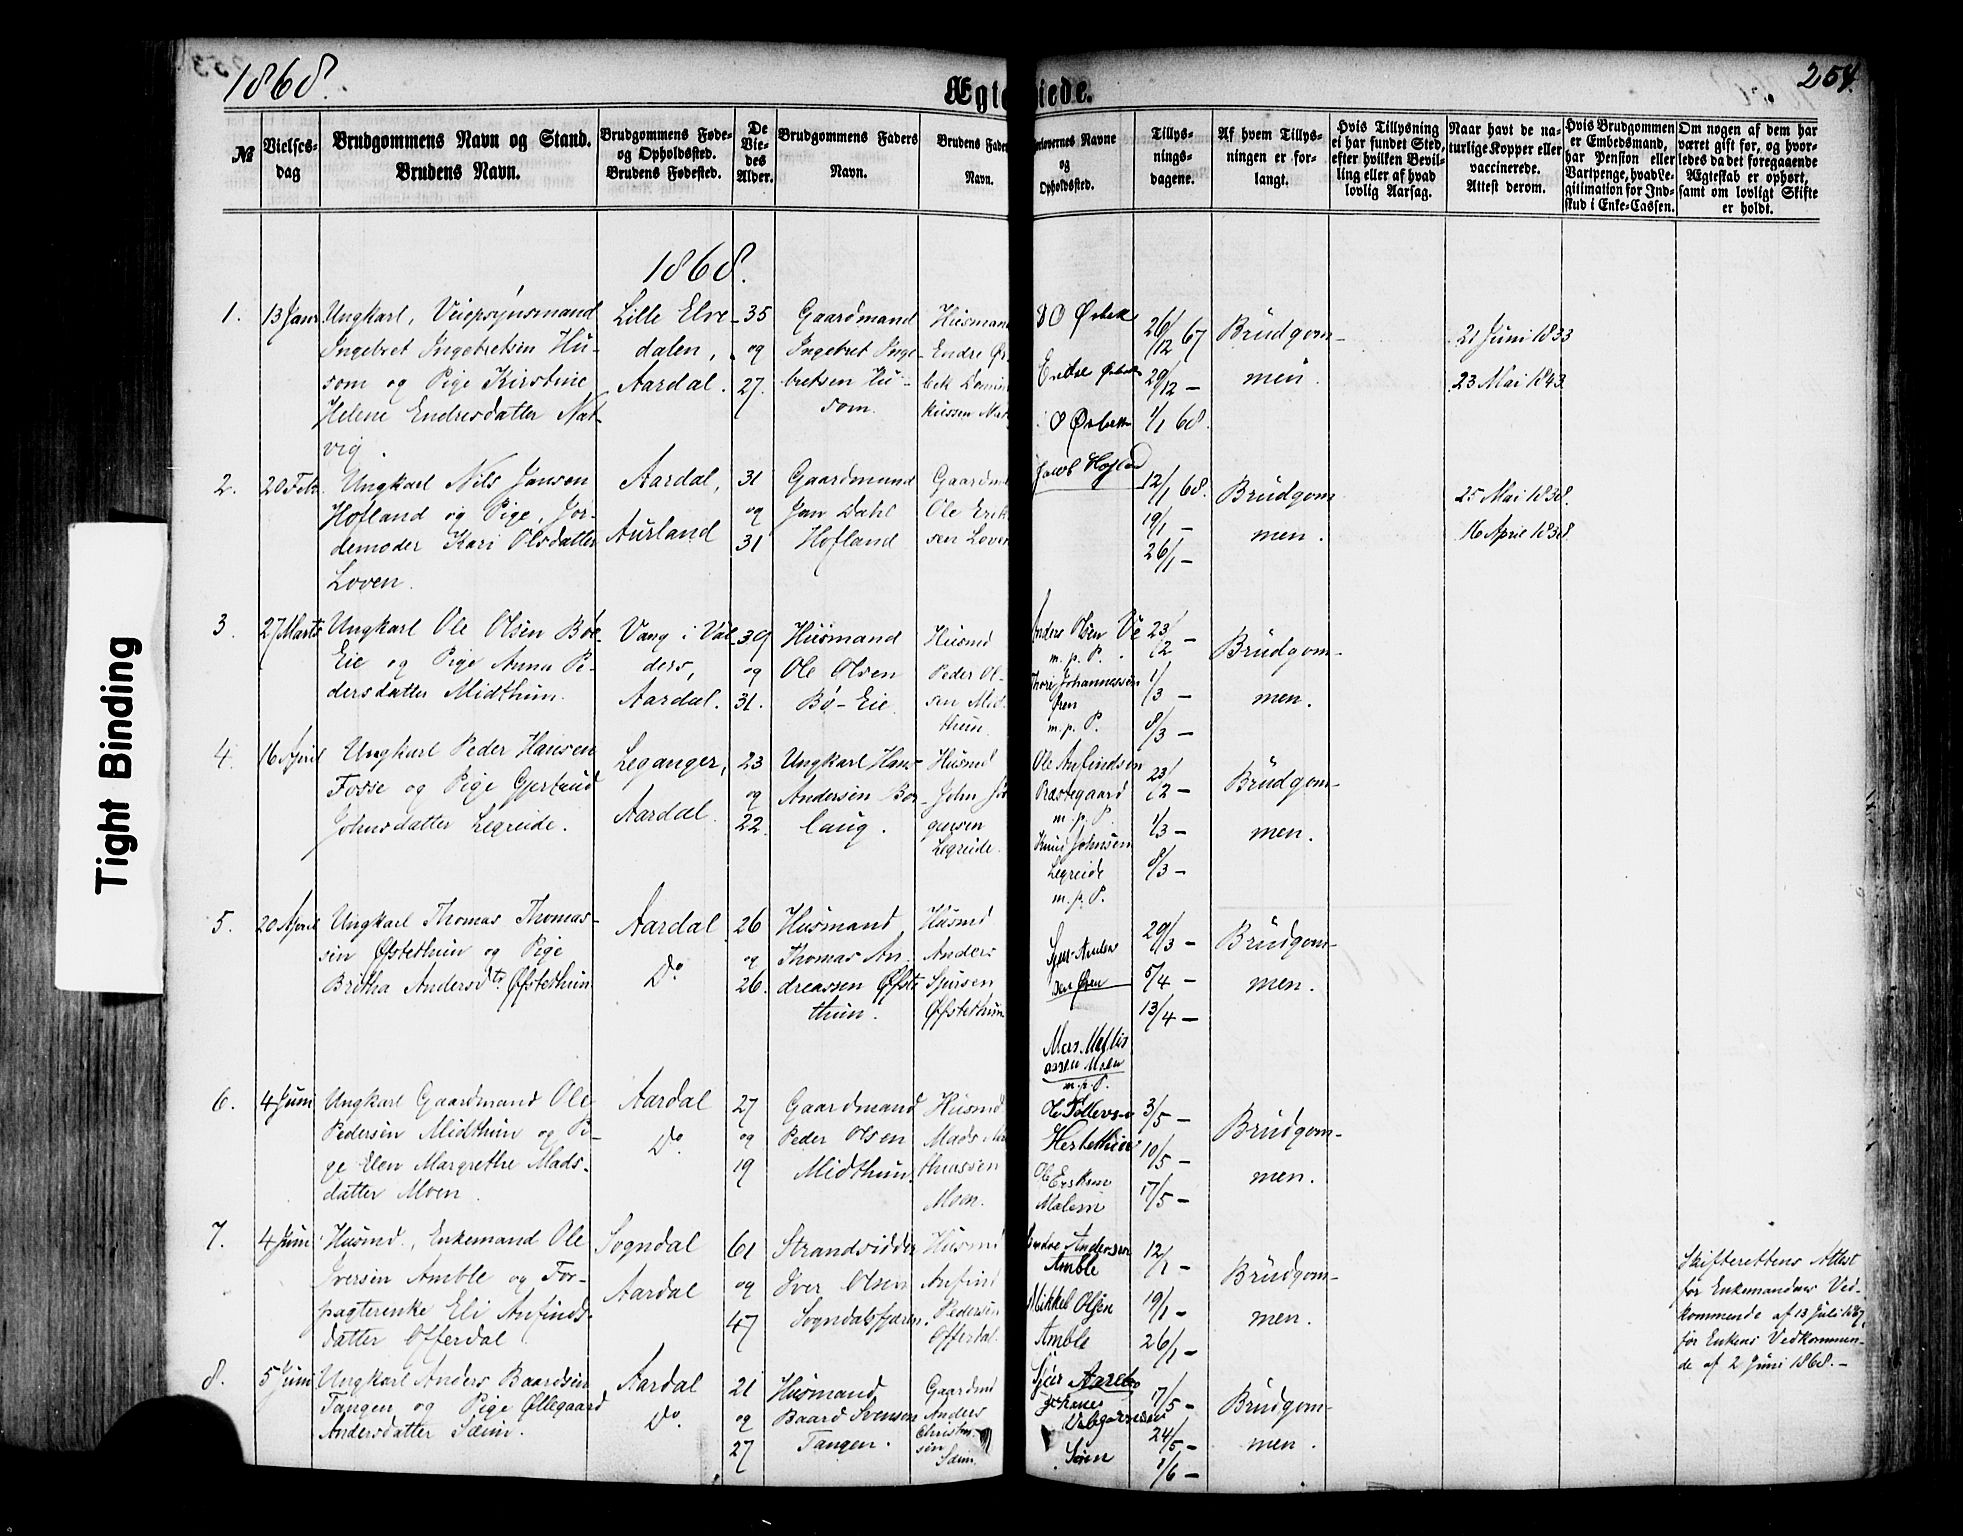 1868.
254.
Ægteviede.
№
Vielses-
dag
Brudgommens Navn og Stand.
Brudens Navn.
Brudgommens Føde-
og Opholdssted.
Brudens Fødested.
De
Vie-
des
Alder.
Brudgommens Faders
Navn.
Brudens Fader
Navn.
Forlovernes Navne
og
Opholdssted.
Tillys-
nings-
dagene.
Af hvem Tillys-
ningen er for-
langt.
Hvis Tillysning
ei har fundet Sted,
efter hvilken Bevil-
ling eller af hvad
lovlig Aarsag.
Naar havt de na-
turlige Kopper eller
vaccinerede.
Attest derom.
Hvis Brudgommen
er Embedsmand,
har Pension eller
Vartpenge, hvad Le-
gitimation for Ind-
skud i Enke-Cassen.
Om nogen af dem har
været gift før, og hvor-
ledes da det foregaaende
Ægteskab er ophørt,
samt om lovligt Skifte
er holdt.
Tight Binding
1868.
1.
13 Janr
Ungkarl, Veiopsynsmand
Ingebret Ingebretsen Hu-
som og Pige Kirstine
Helene Endresdatter Nat-
vig.
Lille Elve-
dalen,
Aardal.
35
og
27.
Gaardmand
Ingebret Inge-
bretsen Hu-
som.
Husmand
Endre Ør-
bek
O Ørbek
26/12 67
29/12 –
1/1 68.
Brudgom-
men.
21 Juni 1833
23 Mai 1843
2.
20 Febr.
Ungkarl Nils Jansen
Hofland og Pige, Jor-
demoder Kari Olsdatter
Loven.
Aardal,
Aurland
31
og
31
Gaardmand
Jan Dahl
Hofland
Gaardm
Ole Erik
sen Loven
Jacob
12/1 68.
19/1 –
26/1 –
Brudgom
men.
25 Mai 1838.
16 April 1838.
3.
27 Marts
Ungkarl Ole Olsen Bøe-
Eie og Pige Anna Pe-
dersdatter Midthun.
Vang i Val-
ders,
Aardal.
39
og
31.
Husmand
Ole Olsen
Bø-Eie
Husmd
Peder Ol-
sen Mid-
thun.
Anders Olsen Ve
m. p. P.
Johannessen
Øren
m. p. P.
23/2 –
1/3 –
8/3 –
Brudgom-
men.
4.
16 April
Ungkarl Peder Hansen
Fosse og Pige Gjertrud
Johnsdatter Legreide.
Leganger,
Aardal.
23
og
22.
Ungkarl Hans
Andersen Bor-
laug.
Husmd
John
garsen
Legreide.
Ole Anfindsen
Præstegaard
m. p. P.
Knud Johnsen
Legreide
m. p. P.
23/2 –
1/3 –
8/3 –
Brudgom-
men.
5.
20 April
Ungkarl Thomas Thomas-
sen Øfstethun og Pige
Britha Andersdtr Øfstethun.
Aardal
Do
26
og
26.
Husmand
Thomas An-
dreassen Øfste
thun.
Husmd
Anders
Sjursen
Øfstethun
Sjur
sen Øren
29/3 –
5/4 –
13/4 –
Brudgom-
men.
6.
4 Juni
Ungkarl Gaardmand Ole
Pedersen Midthun og Pi-
ge Elen Margrethe Mads-
datter Moen.
Aardal
Do.
27
og
19
Gaardmand
Peder Olsen
Midthun.
Husmd
Mads Ma
thiassen
Moen.
Moen
m. p. P.
3/5 –
10/5 –
17/5 –
Brudgom-
men.
7.
4 Juni
Husmd., Enkemand Ole
Iversen Amble og For-
pagterenke Eli Anfinds-
datter Offerdal.
Sogndal
Aardal
61
og
47
Strandsidder
Iver Olsen
Sogndalsfjæren.
Husmd
Anfind
Pedersen
Offerdal.
Endre Andersen
Amble
Mikkel Olsen
Amble
12/1 –
19/1 –
26/1 –
Brudgom-
men.
Skifterettens Attest
for Enkemandens Ved-
kommende af 13 Juli 1867,
for Enkens Vedkommen-
de af 2 Juni 1868. –
8.
5 Juni
Ungkarl Anders Baardsen
Tangen og Pige Øllegaard
Andersdatter Seim.
Aardal
Do.
21
og
27
Husmand
Baard Svensen
Tangen.
Gaardmd
Anders
Christen-
sen
Seim.
17/5 –
24/5 –
1/6 –
Brudgom-
men.